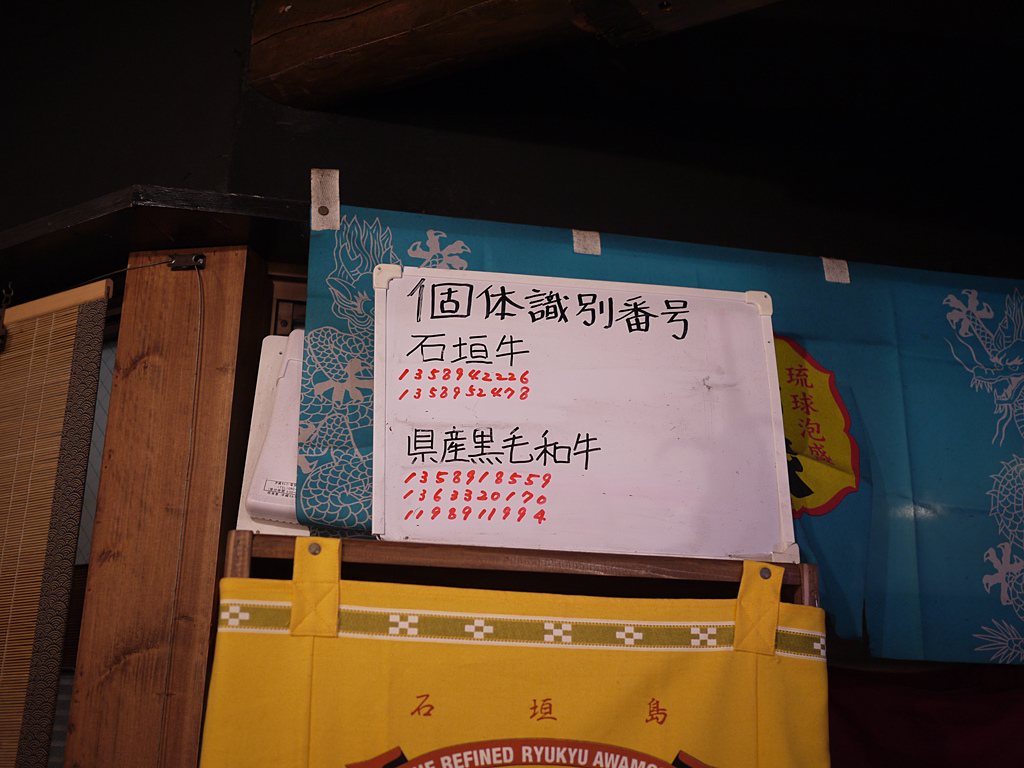 個体識別番号
石垣牛
1358942226
1358952478
県産黒毛和牛
1358918559
1363320170
1198911994
琉球泡盛
石垣島
REFINED RYUKYU